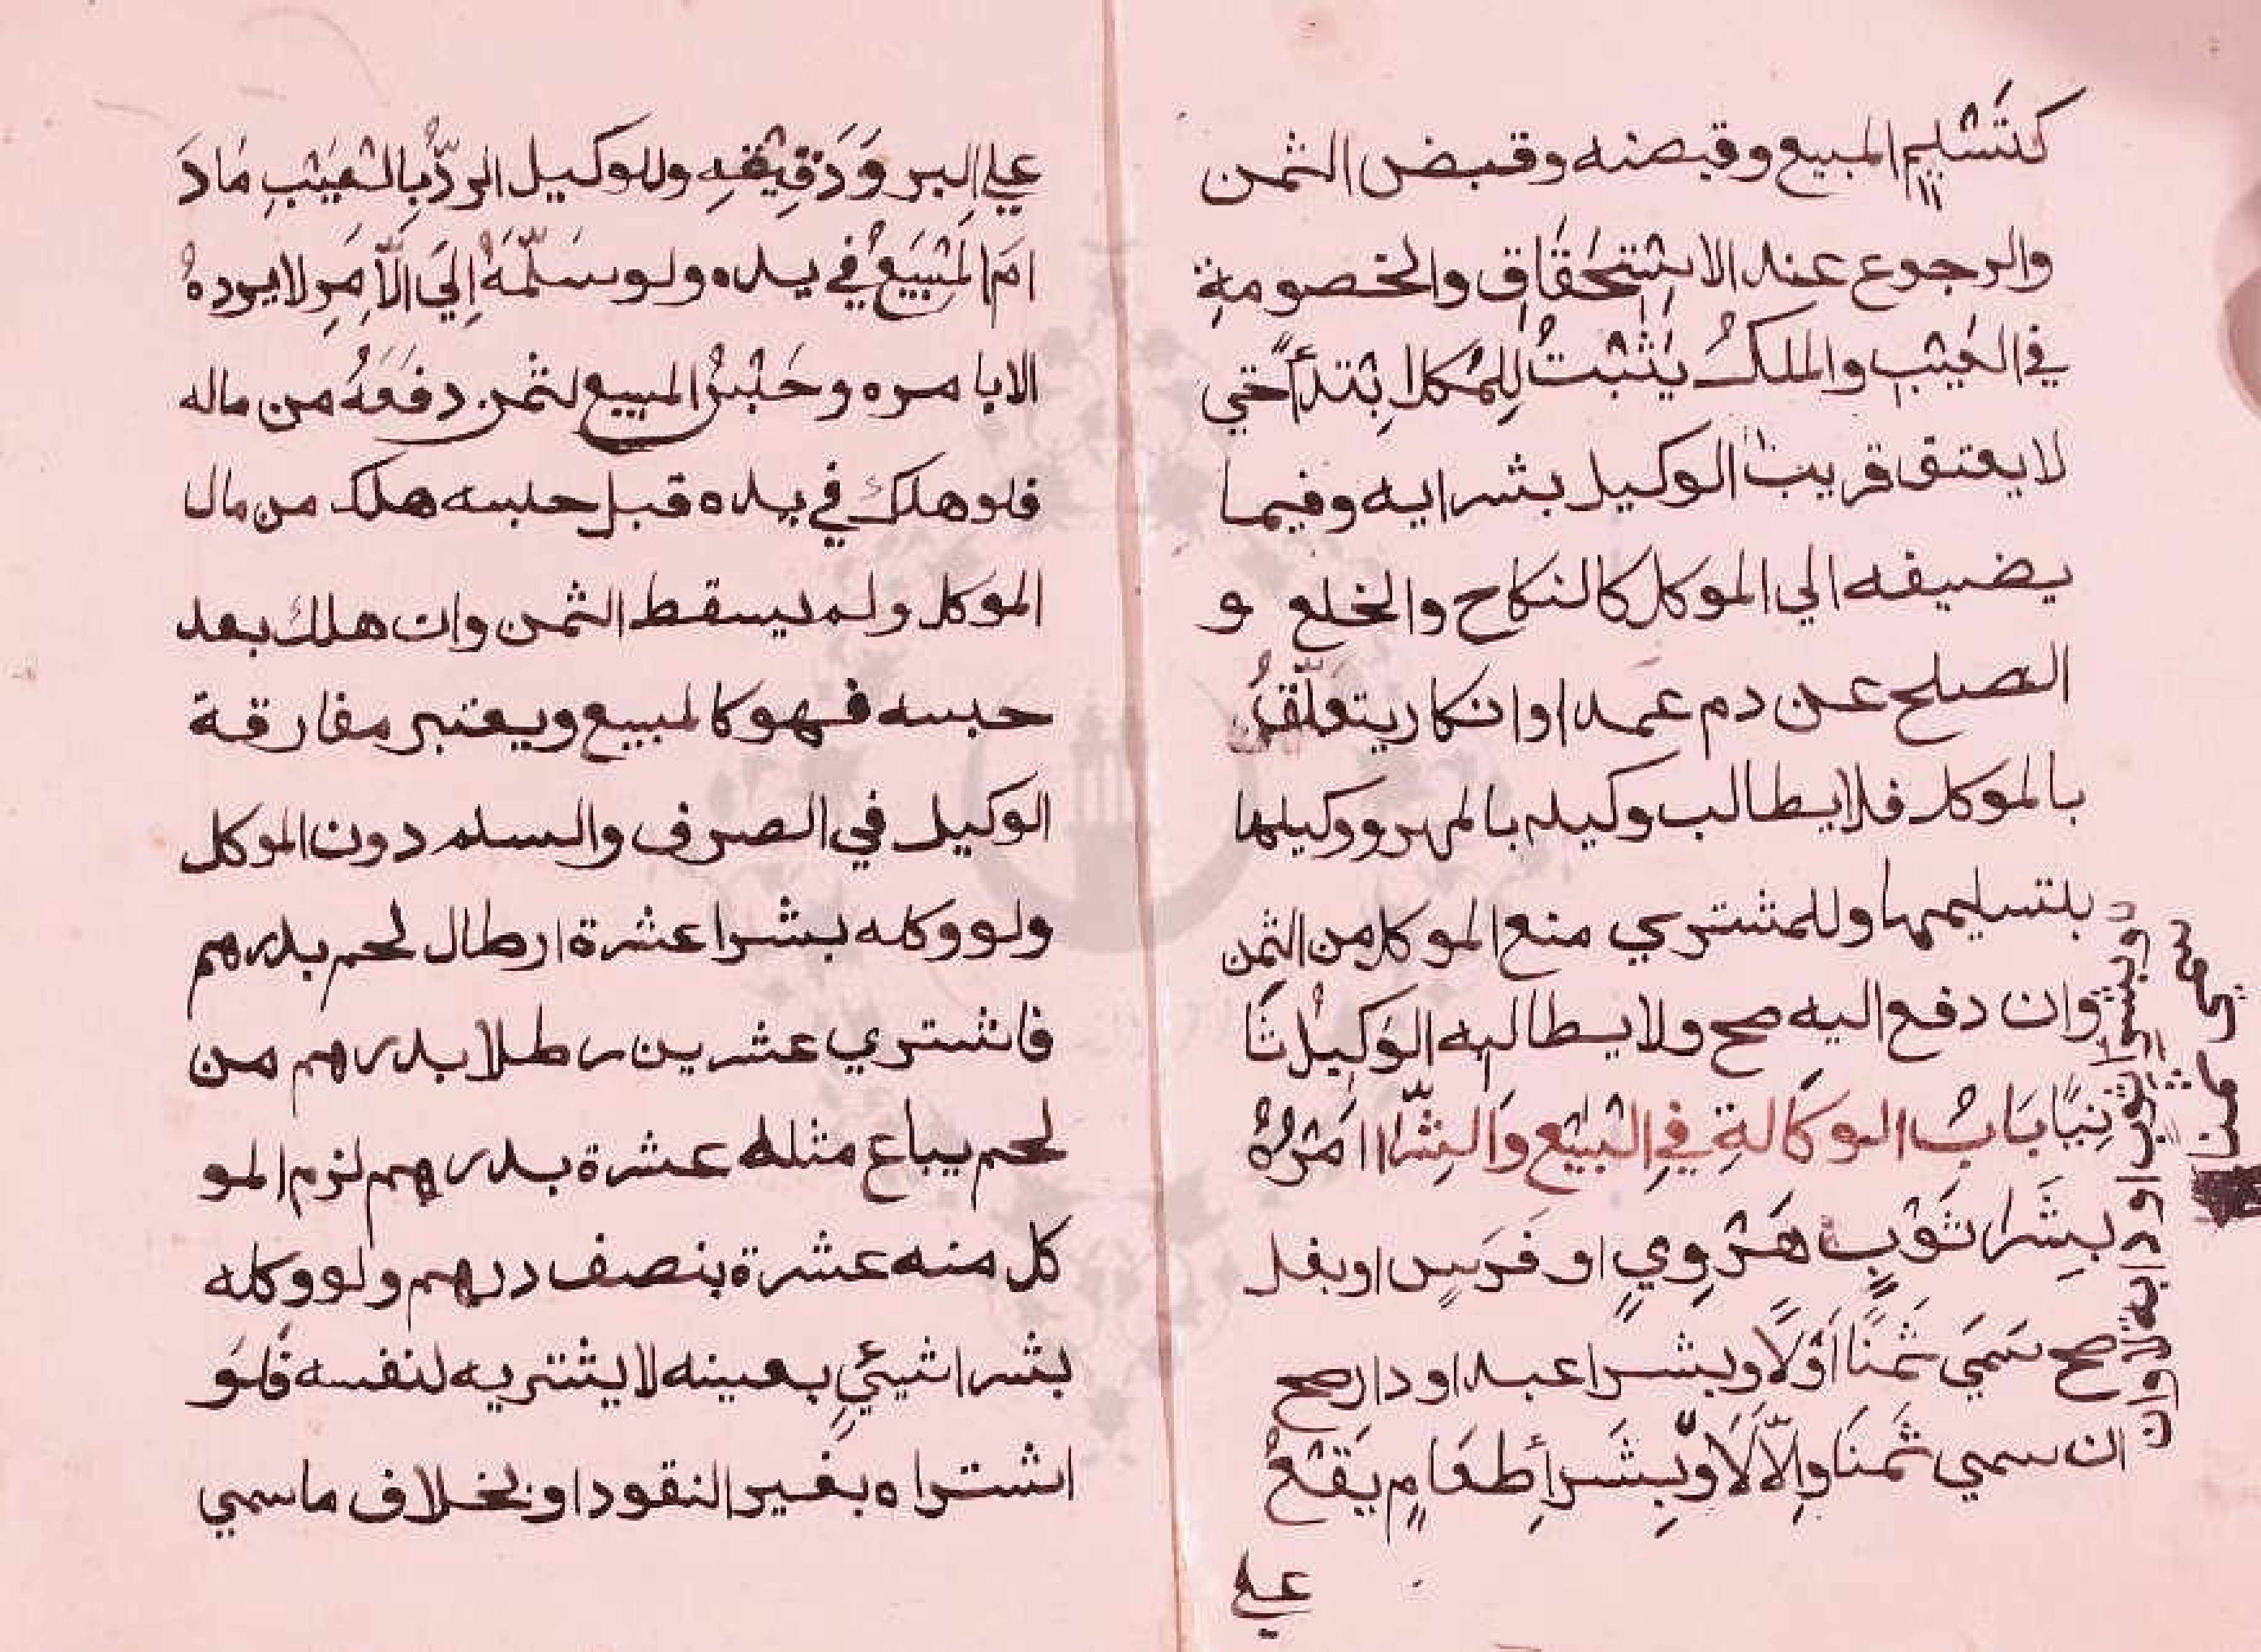 كَتَسْلِيمِ المبيع وقبضه وقبض الثمن
والرجوع عند الاسْتِحْقَاقِ والخصومةِ
في العَيْبِ والملكُ يَثْبُتُ لِلْمُكل ابْتِدَأً حَتي
لا يعتق قريبُ الوكيل بشرايه وفيما
يضيفه الي الموكل كالنكاح والخلع و
الصلح عن دم عمد او انكار يتعلَّقُ
بالموكل فلا يطالب وكيله بالمهر ووكيلها
بلتسليمها وللمشتري منع الموكل من الثمن
وان دفع اليه صح ولا يطالبه الوَكِيْلُ ثَا
نِيًا بَابُ الوكَالةِ فِي الْبَيْعِ وَالشِّرَا امَرْهُ
بِشَرَا ثَوْبٍ هَرْوِيٍ او فَرَسٍ او بغل
صح سَمَيَ ثَمَنًا اَوْلَا وبشرا عبد او دار صح
ان سمي ثَمنَا وَاِلّاَ لَا وَبِشَرأِ طعَامٍ يَقَعُ
علي
وبشرا ثوب او دابه لا وان
سمي ثمن
علي البر وَدَقِيْقِهِ وللوكيل الردُّ بِالْعَيْبِ مَا دَ
امَ الْمَبِيَعُ فِي يده ولو سَلَّمَهُ اِلَيَ الْاَمِرِ لا يرده
الا بامره وحَبْسُ المبيع لثمن دفَعَهُ من ماله
فلو هلك في يده قبل حبسه هلك من مال
الموكل ولم يسقط الثمن وان هلك بعد
حبسه فهو كالمبيع ويعتبر مفارقة
الوكيل في الصرف والسلم دون الموكل
ولو وكله بشرا عشرة ارطال لحم بدرهم
فاشتري عشرين رطلا بدرهم من
لحم يباع مثله عشرة بدرهم لزم المو
كل منه عشرة بنصف درهم ولو وكله
بشرا شيئيٍ بعينه لا يشتريه لنفسه فَلوَ
اشتراه بغير النقود او بخلاف ما سمي